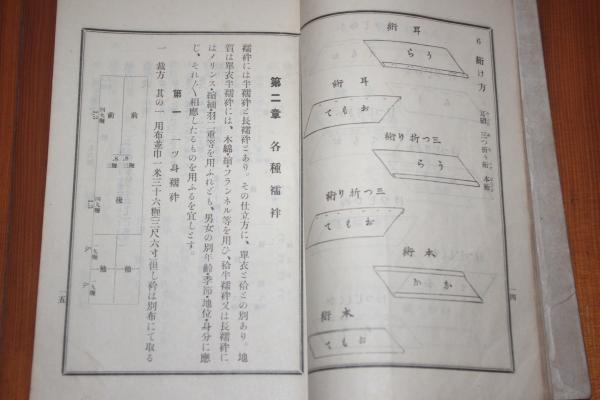 6 絎け方 耳絎 三つ折り絎 本絎
耳絎
うら
耳絎
おもて
三つ折り絎
うら
三つ折り絎
おもて
本絎
なか
本絎
おもて
四
第二章 各種襦袢
襦袢には半襦袢と長襦袢とあり。その仕立方に、單衣と袷との別あり。地
質は單衣半襦袢には、木綿・縮・フランネル等を用ひ、袷半襦袢又は長襦袢に
はメリンス・縮緬・羽二重等を用ふれども、男女の別・年齢・季節・地位・身分に應
じ、それ〲相應したるものを用ふるを宜しとす。
第一 一ツ身襦袢
一 裁方 其の一 用布並巾一米三十六糎(三尺六寸)但し衿は別布にて取る
前
前
後
袖
袖
五